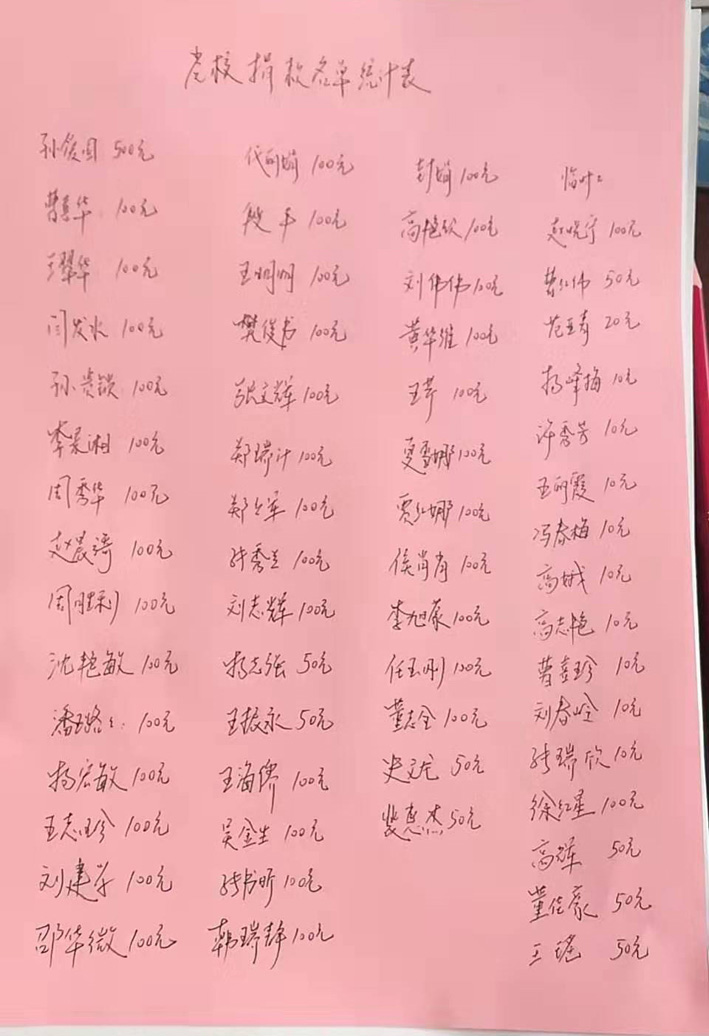 老校捐款名单统计表
孙俊国 500元
曹嘉华 100元
王翠华 100元
闫发水 100元
孙贵锁 100元
李景湘 100元
周秀华 100元
赵晨溪 100元
周胜利 100元
沈艳敏 100元
潘璐 100元
杨宏敏 100元
王志珍 100元
刘建学 100元
邵华微 100元
代丽娟 100元
段平 100元
王明明 100元
樊俊书 100元
张文辉 100元
郑瑞汁 100元
郑立军 100元
张秀兰 100元
刘志辉 100元
杨志强 50元
王振永 50元
王海儒 100元
吴金生 100元
张书昕 100元
韩瑞静 100元
封娟 100元
高艳钦 100元
刘伟伟 100元
黄华维 100元
王芹 100元
夏雪娜 100元
贾红娜 100元
侯肖肖 100元
李旭豪 100元
任玉刚 100元
董志全 100元
史文龙 50元
裴惠杰 50元
临时:
赵晓宁 100元
曹红伟 50元
范亚青 20元
杨峰梅 10元
许秀芳 10元
王丽霞 10元
冯春梅 10元
高娥 10元
高志艳 10元
曹喜珍 10元
刘春岭 10元
张瑞欣 10元
徐红星 100元
高辉 50元
董佳豪 50元
王瑶 50元